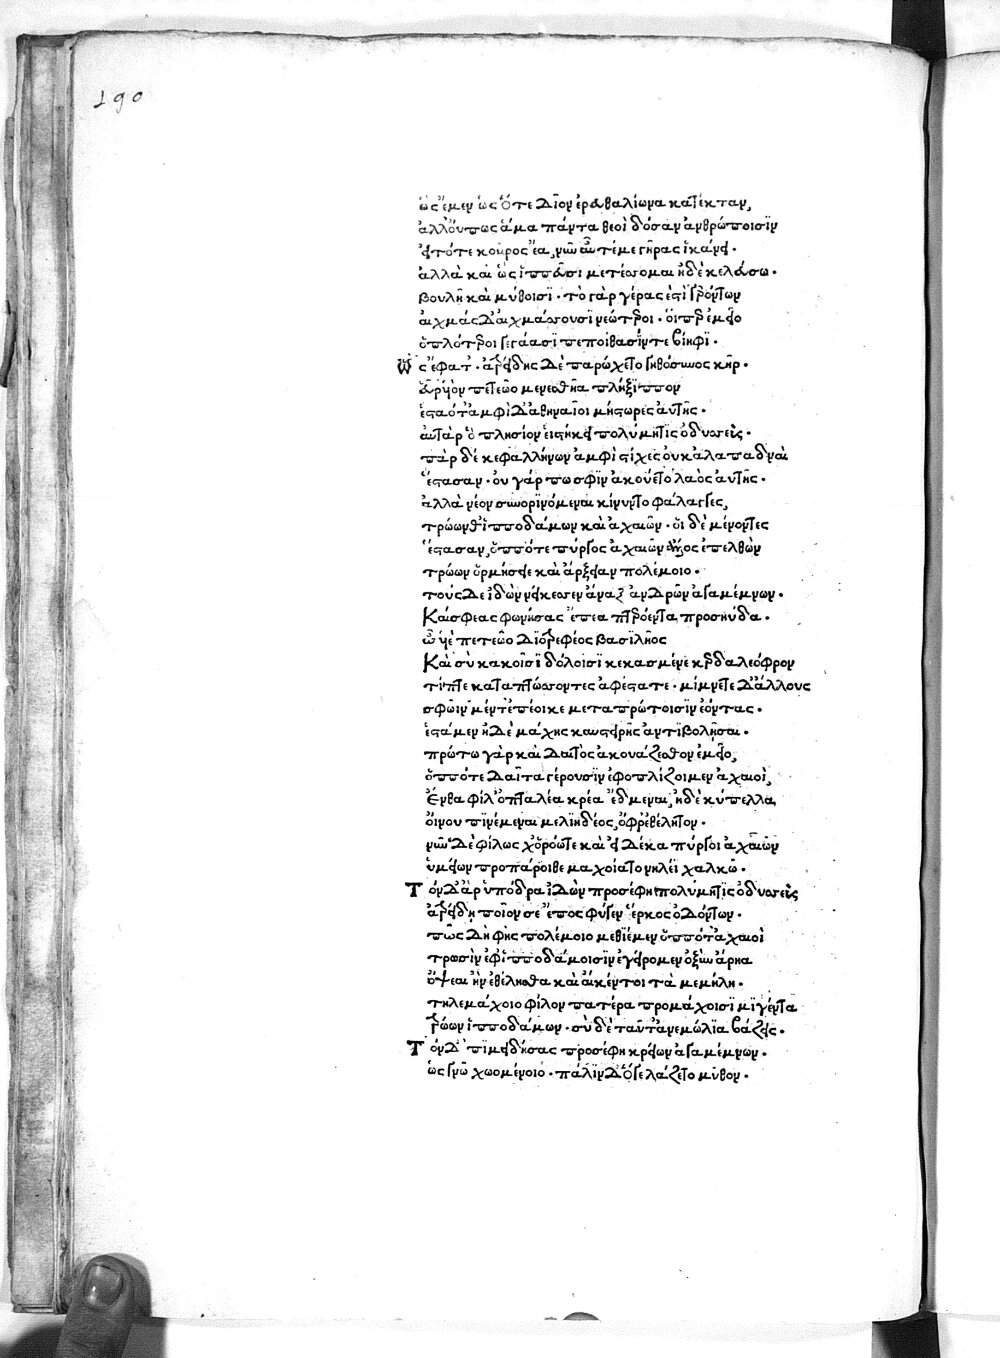 190
ὡς ἔμεν ὡς ὅτε δῖον ἐρευθαλίωνα κατέκταν,
ἀλλ' οὔπως ἅμα πάντα θεοὶ δόσαν ἀνθρώποισϊν
εἰ τότε κοῦρος ἔα, νῦν αὖτέ με γῆρας ἱκάνει·
ἀλλὰ καὶ ὣς ἱππεῦσι μετέσσομαι ἠδὲ κελεύσω·
βουλῆ καὶ μύθοισϊ· τὸ γὰρ γέρας ἐστὶ γερόντων
αἰχμὰς δ' αἰχμάσσουσϊ νεώτεροι· οἵπερ ἐμεῖο
ὁπλότεροι γεγάασϊ πεποίθασΐν τε βίηφϊ·
Ὣς ἔφατ'· ἀτρείδης δὲ παρώχετο γηθόσυνος κῆρ·
εὗρ' ϋἱὸν πετεῶο μενεσθῆα πλήξϊππον
ἑσταότ' ἀμφὶ δ' ἀθηναῖοι μήστωρες ἀϋτῆς·
αὐτὰρ ὁ πλησίον ἑιστήκει πολύμητϊς ὀδυσσεὺς·
πὰρ δὲ κεφαλλήνων ἀμφὶ στίχες οὐκ ἀλαπαδναὶ
ἕστασαν· οὐ γάρ πω σφϊν ἀκούετο λαὸς ἀϋτῆς·
ἀλλὰ νέον συνορϊνόμεναι κίνυντο φάλαγγες,
τρώων θ' ἱπποδάμων καὶ ἀχαιῶν· οἱ δὲ μένοντες
ἕστασαν, ὁππότε πύργος ἀχαιῶν ἄλλος ἐπελθὼν
τρώων ὁρμήσειε καὶ ἄρξειαν πολέμοιο·
τοὺς δὲ ἰδὼν νείκεσσεν ἄναξ ἀνδρῶν ἀγαμέμνων·
Καί σφεας φωνήσας ἔπεα πτερόεντα προσηύδα·
ὦ ϋἱὲ πετεῶο διοτρεφέος βασϊλῆος
Καὶ σὺ κακοῖσϊ δόλοισϊ κεκασμένε κερδαλεόφρον
τίπτε καταπτώσσοντες ἀφέστατε· μίμνετε δ' ἄλλους
σφῶϊν μέν τ' ἐπέοικε μετὰ πρώτοισϊν ἐόντας·
ἑστάμεν ἠδὲ μάχης καυστειρῆς ἀντϊβολῆσαι·
πρώτω γὰρ καὶ δαιτὸς ἀκουάζεσθον ἐμεῖο,
ὁππότε δαῖτα γέρουσϊν ἐφοπλίζοιμεν ἀχαιοὶ,
Ἔνθα φίλ' ὀπταλέα κρέα ἔδμεναι, ἠδὲ κύπελλα
οἴνου πϊνέμεναι μελϊηδέος, ὄφρ' ἐθέλητον·
νῦν δὲ φίλως χ' ὁρόωτε καὶ εἰ δέκα πύργοι ἀχαιῶν
ὑμείων προπάροιθε μαχοίατο νηλέϊ χαλκῶ·
Τὸν δ' ἄρ' ὑπόδρα ἰδὼν προσέφη πολύμητϊς ὀδυσσεὺς
ἀτρείδη ποῖόν σε ἔπος φύγεν ἕρκος ὀδόντων·
πῶς δὴ φὴς πολέμοιο μεθϊέμεν ὁππότ' ἀχαιοὶ
τρωσὶν ἐφ' ἱπποδάμοισϊν ἐγείρομεν ὀξὺν ἄρηα
ὄψεαι ἢν ἐθέλησθα καὶ αἴ κέν τοι τὰ μεμήλη·
τηλεμάχοιο φίλον πατέρα προμάχοισϊ μϊγέντα
τρώων ἱπποδάμων· σὺ δὲ ταῦτ' ἀνεμώλϊα βάζεις·
Τὸν δ' ἐπϊμειδήσας προσέφη κρείων ἀγαμέμνων·
ὡς γνῶ χωομένοιο· πάλϊν δ' ὅγε λάζετο μῦθον·